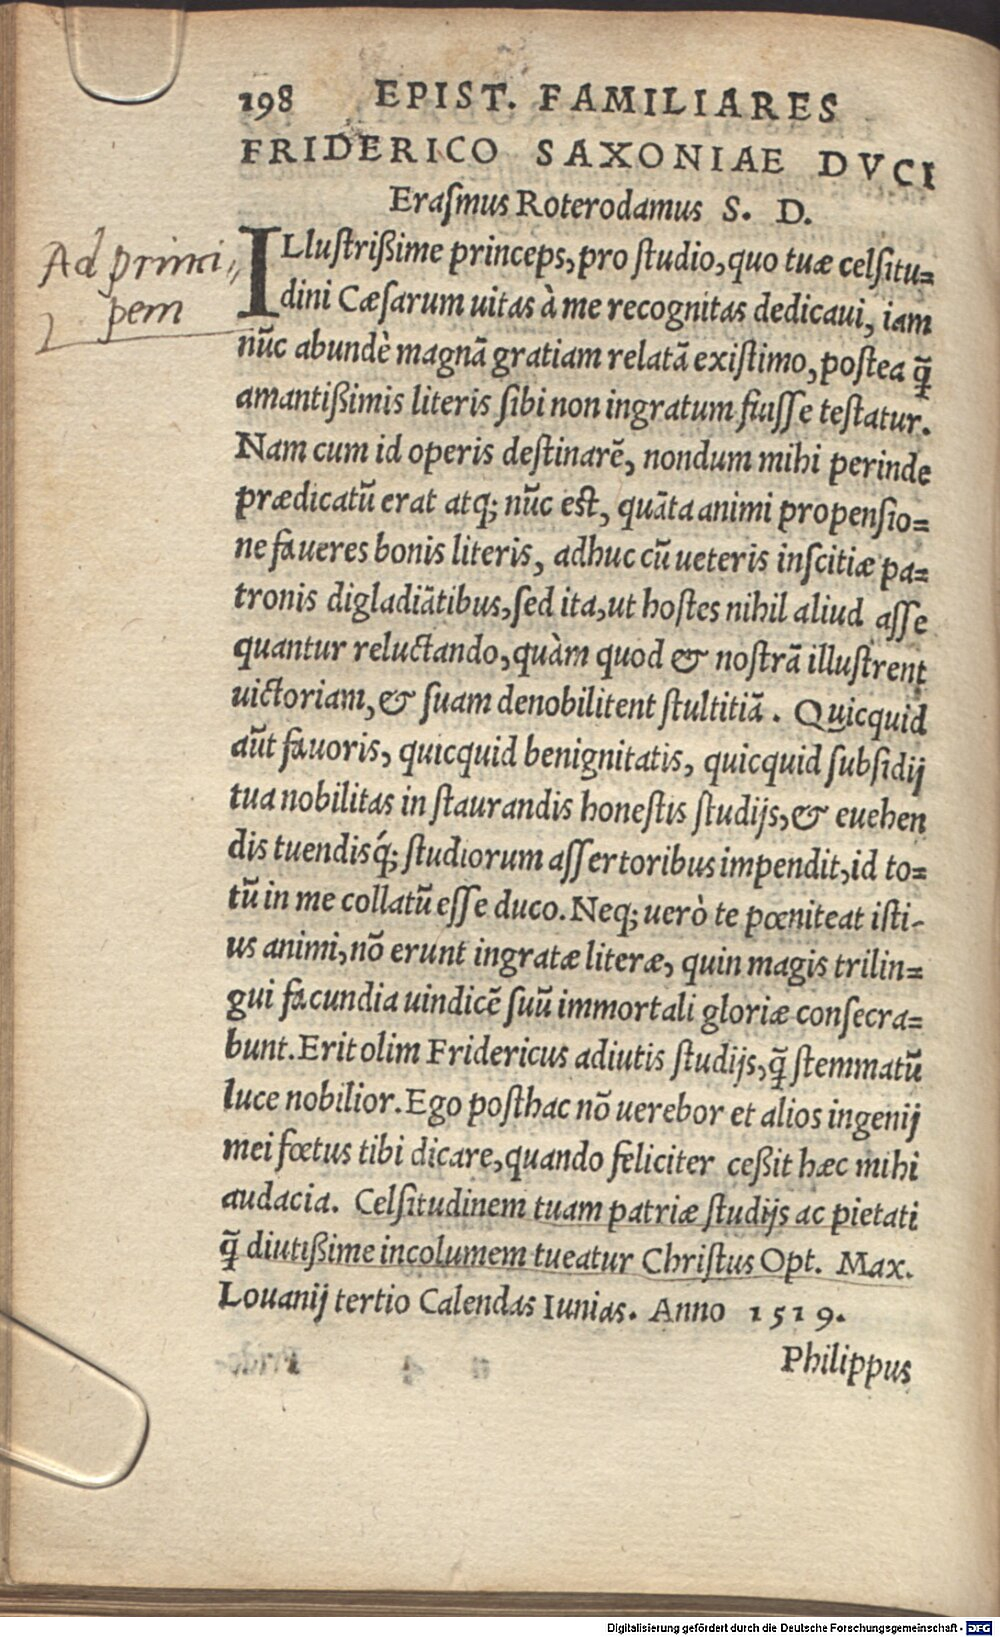 198 EPIST. FAMILIARES
FRIDERICO SAXONIAE DVCI
Eraſmus Roterodamus S. D.
Ad princi⸗
pem
ILluſtrißime princeps, pro ſtudio, quo tuæ celſitu⸗
dini Cæſarum uitas à me recognitas dedicaui, iam
nũc abundè magnã gratiam relatã exiſtimo, poſtea q̃
amantißimis literis ſibi non ingratum fuiſſe teſtatur.
Nam cum id operis deſtinarẽ, nondum mihi perinde
prædicatũ erat atq; nũc est, quãta animi propenſio⸗
ne faueres bonis literis, adhuc cũ ueteris inſcitiæ pa⸗
tronis digladiãtibus, ſed ita, ut hoſtes nihil aliud aſſe
quantur reluctando, quàm quod & noſtrã illuſtrent
uictoriam, & ſuam denobilitent ſtultitiã. Quicquid
aũt fauoris, quicquid benignitatis, quicquid ſubſidij
tua nobilitas in ſtaurandis honeſtis ſtudijs, & euehen
dis tuendisq́; ſtudiorum aſſertoribus impendit, id to⸗
tũ in me collatũ eſſe duco. Neq; uerò te pœniteat iſti-
us animi, nõ erunt ingratæ literæ, quin magis trilin⸗
gui facundia uindicẽ ſuũ immortali gloriæ conſecra⸗
bunt. Erit olim Fridericus adiutis ſtudijs, q̃ ſtemmatũ
luce nobilior. Ego poſthac nõ uerebor et alios ingenij
mei fœtus tibi dicare, quando feliciter ceßit hæc mihi
audacia. Celſitudinem tuam patriæ ſtudijs ac pietati
q̃ diutißime incolumem tueatur Chriſtus Opt. Max.
Louanij tertio Calendas Iunias. Anno 1519.
Philippus
Digitalisierung gefördert durch die Deutsche Forschungsgemeinschaft - DFG